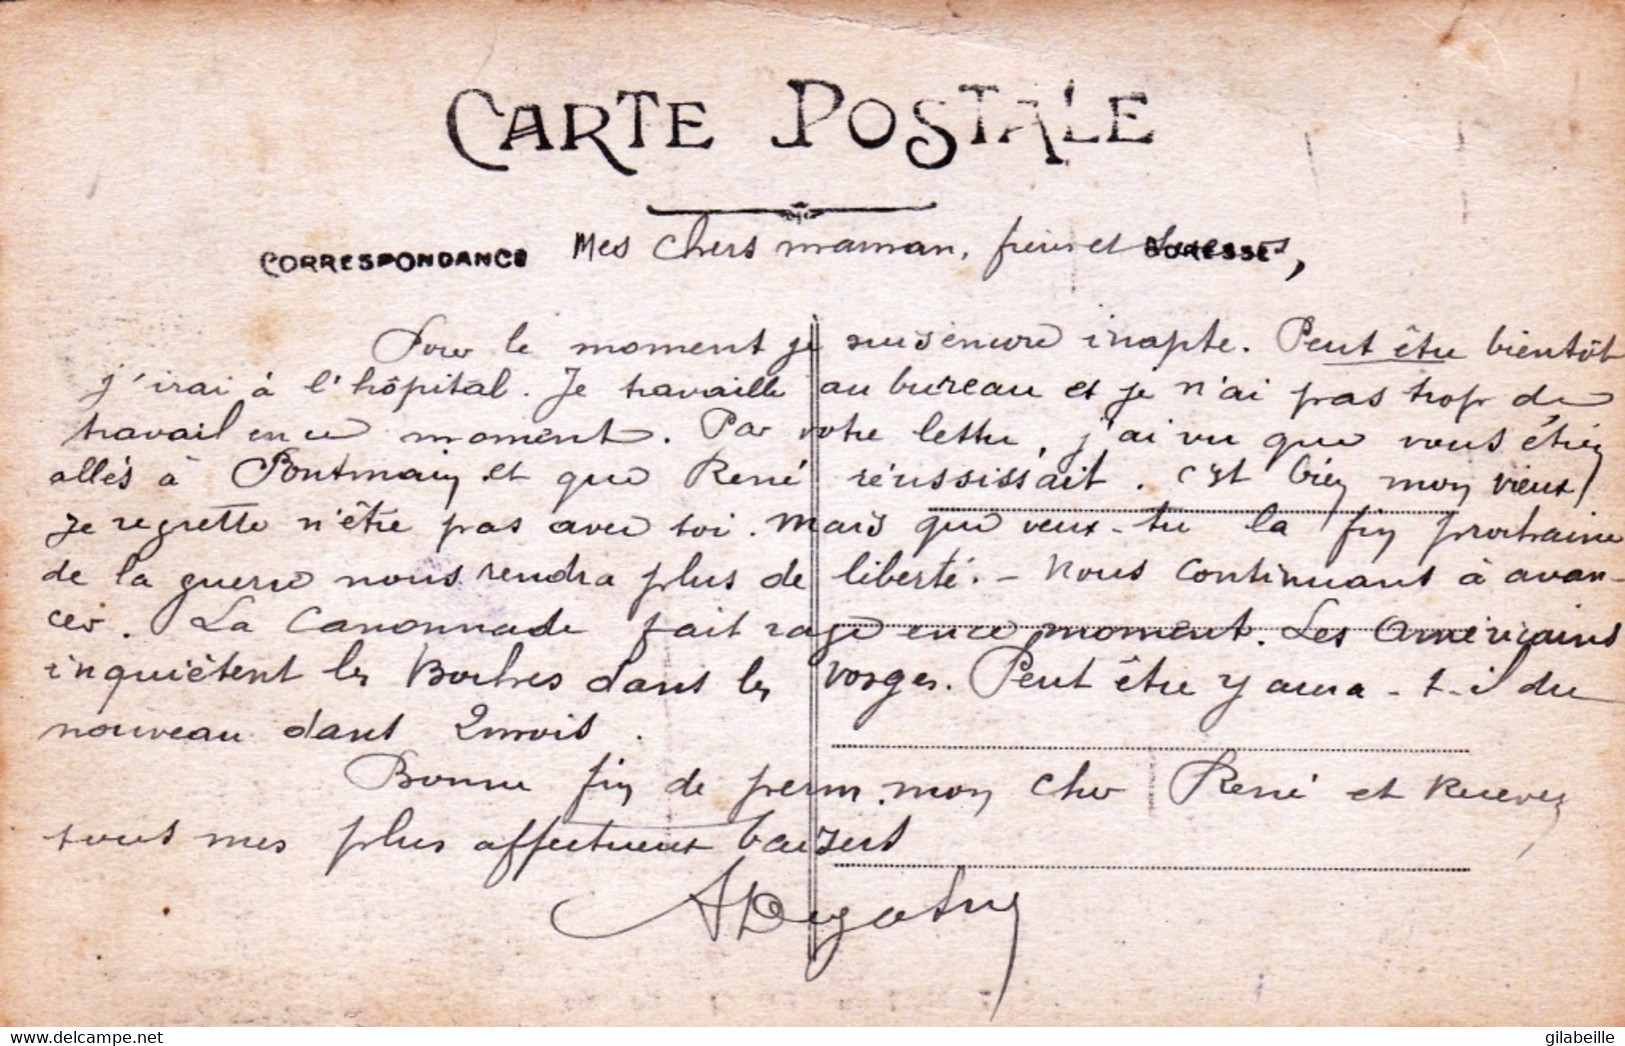 CARTE POSTALE
CORRESPONDANCE
ADRESSE
Mes Chers maman, frères et soeurs,
Pour le moment je suis encore inapte. Peut être bientôt
j'irai à l'hôpital. Je travaille au bureau et je n'ai pas trop de
travail en ce moment. Par votre lettre, j'ai vu que vous étiez
allés à Pontmain et que René réussissait. C'est bien mon vieux
je regrette n'être pas avec toi. Mais que veux-tu la fin prochaine
de la guerre nous rendra plus de liberté. - Nous continuons à avan-
cer. La Canonnade fait rage en ce moment. Les Américains
inquiètent les Boches dans les Vosges. Peut être y aura-t-il du
nouveau dans 2 mois.
Bonne fin de perm. mon cher René et Recevez
tous mes plus affectueux baisers
delcampe.net
gilabeille